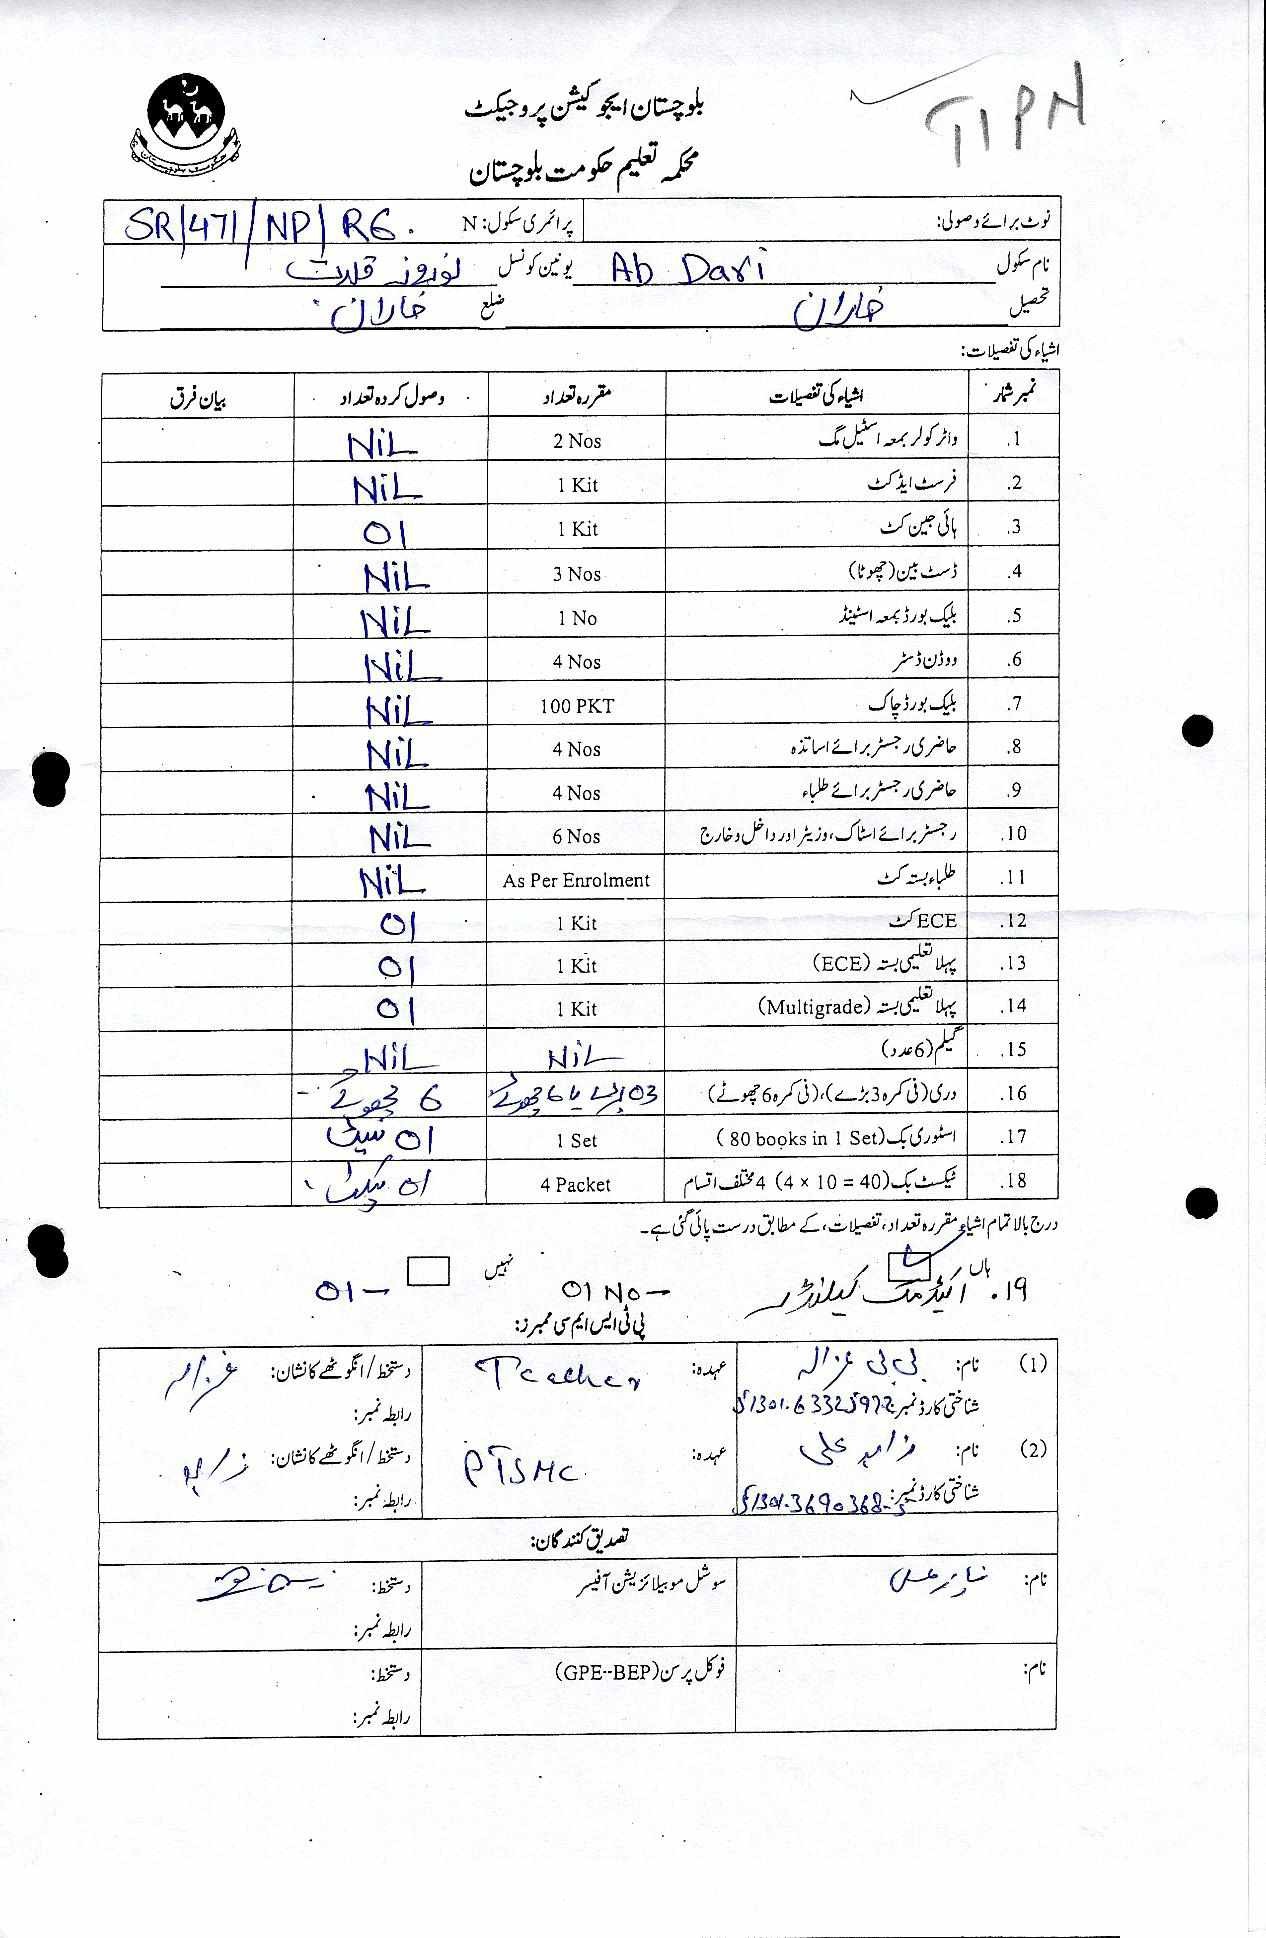 TIPN
بلوچستان ایجوکیشن پروجیکٹ
محکمہ تعلیم حکومت بلوچستان
نوٹ برائے وصولی: پرائمری سکول: N SR/471/NP/R6.
نام سکول Ab Dari یونین کونسل نوروز قلات
تحصیل خاران ضلع خاران
اشیاء کی تفصیلات:
نمبر شمار اشیاء کی تفصیلات مقررہ تعداد وصول کردہ تعداد بیان فرق
1. واٹر کولر بمعہ اسٹیل مگ 2 Nos NiL
2. فرسٹ ایڈ کٹ 1 Kit NiL
3. ہائی جین کٹ 1 Kit 01
4. ڈسٹ بین (چھوٹا) 3 Nos NiL
5. بلیک بورڈ بمعہ اسٹینڈ 1 No NiL
6. ووڈن ڈسٹر 4 Nos NiL
7. بلیک بورڈ چاک 100 PKT NiL
8. حاضری رجسٹر برائے اساتذہ 4 Nos NiL
9. حاضری رجسٹر برائے طلباء 4 Nos NiL
10. رجسٹر برائے اسٹاک، وزیٹر اور داخل و خارج 6 Nos NiL
11. طلباء بستہ کٹ As Per Enrolment NiL
12. ECE کٹ 1 Kit 01
13. پہلا تعلیمی بستہ (ECE) 1 Kit 01
14. پہلا تعلیمی بستہ (Multigrade) 1 Kit 01
15. گلیم (6 عدد) NiL NiL
16. دری (فی کمرہ 3 بڑے)، (فی کمرہ 6 چھوٹے) 03 بڑے یا 6 چھوٹے 6 چھوٹے
17. اسٹوری بک (80 books in 1 Set) 1 Set 01 سیٹ
18. ٹیکسٹ بک (4 × 10 = 40) 4 مختلف اقسام 4 Packet 01 پیکٹ
درج بالا تمام اشیاء مقررہ تعداد، تفصیلات، کے مطابق درست پائی گئی ہے۔
ہاں نہیں
19. اکیڈمک کیلنڈر 01 No 01
پی ٹی ایس ایم سی ممبرز:
(1) نام: بی بی غزالہ عہدہ: Teacher دستخط/انگوٹھے کا نشان: غزالہ
شناختی کارڈ نمبر: رابطہ نمبر:
(2) نام: زاہد علی عہدہ: PTSMC دستخط/انگوٹھے کا نشان: زاہد
شناختی کارڈ نمبر: رابطہ نمبر:
تصدیق کنندگان:
نام: سوشل موبیلائزیشن آفیسر دستخط:
رابطہ نمبر:
نام: فوکل پرسن (GPE--BEP) دستخط:
رابطہ نمبر: